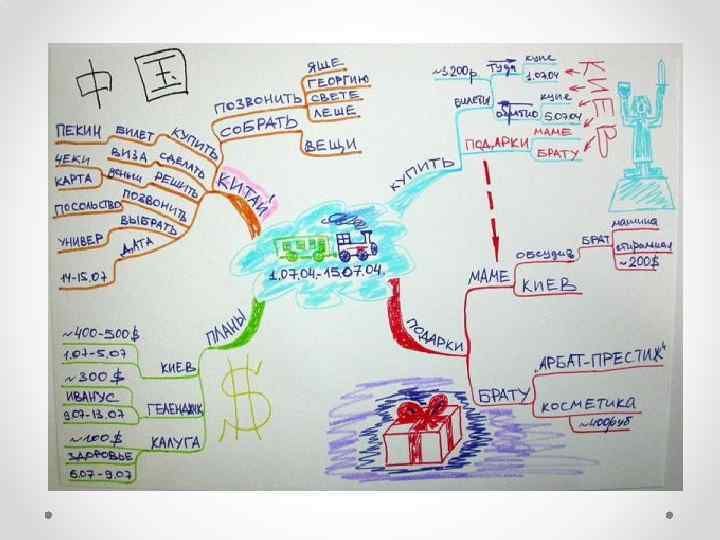 中国
ЯШЕ
ГЕОРГИЮ
СВЕТЕ
ЛЕШЕ
ПОЗВОНИТЬ
СОБРАТЬ
ВЕЩИ
ПЕКИН БИЛЕТ КУПИТЬ
ЧЕКИ ВИЗА СДЕЛАТЬ
КАРТА ДЕНЬГИ РЕШИТЬ
ПОСОЛЬСТВО ПОЗВОНИТЬ
УНИВЕР ВЫБРАТЬ
14-15.07 ДАТА
КИТАЙ!
~3200р ТУДА купе
1.07.04
БИЛЕТЫ
ОБРАТНО купе
5.07.04
ПОДАРКИ МАМЕ
БРАТУ
КИЕВ
КУПИТЬ
1.07.04.-15.07.04.
МАМЕ
ОБСУДИВ БРАТ
машина
стиральная
~200$
КИЕВ
ПОДАРКИ
БРАТУ
"АРБАТ-ПРЕСТИЖ"
КОСМЕТИКА
~400руб
ПЛАНЫ
~400-500$
1.07-5.07
КИЕВ
~300$
ИВАНУС
9.07-13.07
ГЕЛЕНДЖИК
~100$
ЗДОРОВЬЕ
6.07-9.07
КАЛУГА
$